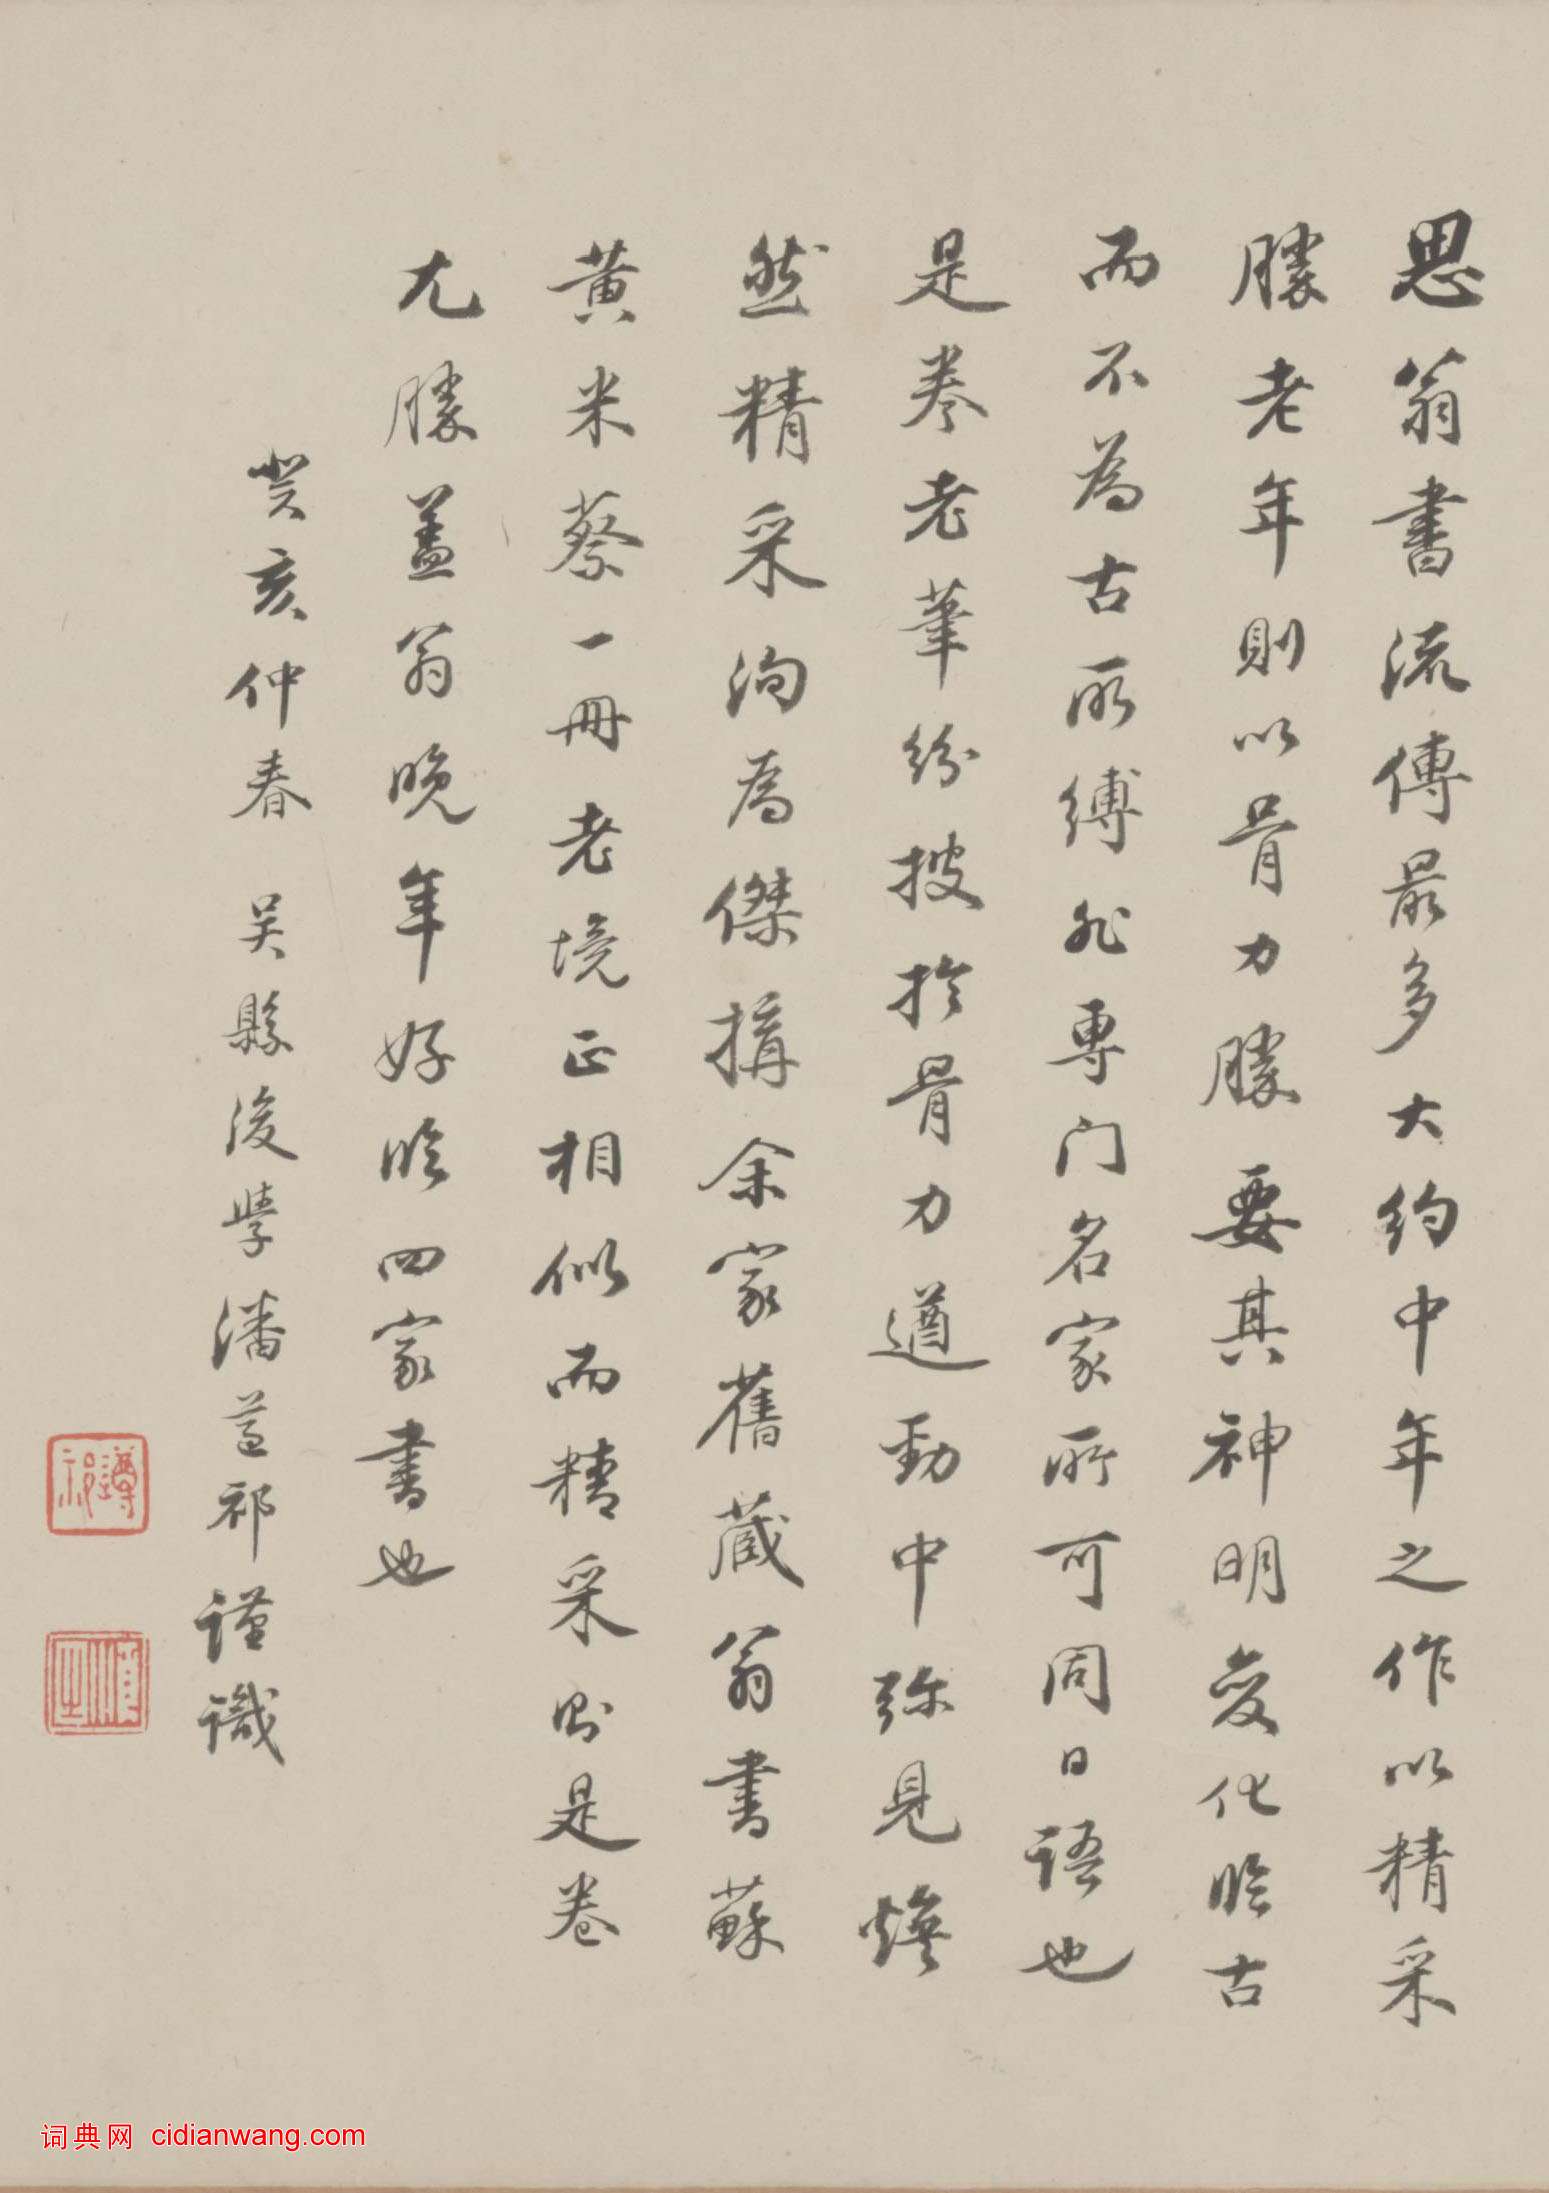 思翁書流傳最多大約中年之作以精采
勝老年則以骨力勝要其神明變化臨古
而不為古所縛非專門名家所可同日語也
是卷老筆紛披於骨力遒勁中彌見煥
然精采洵為傑搆余家舊藏翁書蘇
黃米蔡一冊老境正相似而精采則是卷
尤勝蓋翁晚年好臨四家書也
癸亥仲春 吳縣後學潘遵祁謹識
遵祁
順之
词典网 cidianwang.com